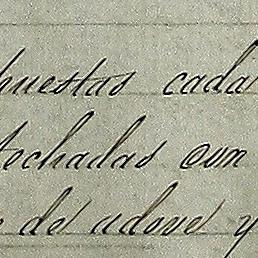 puestas cada
techadas con
de adove y